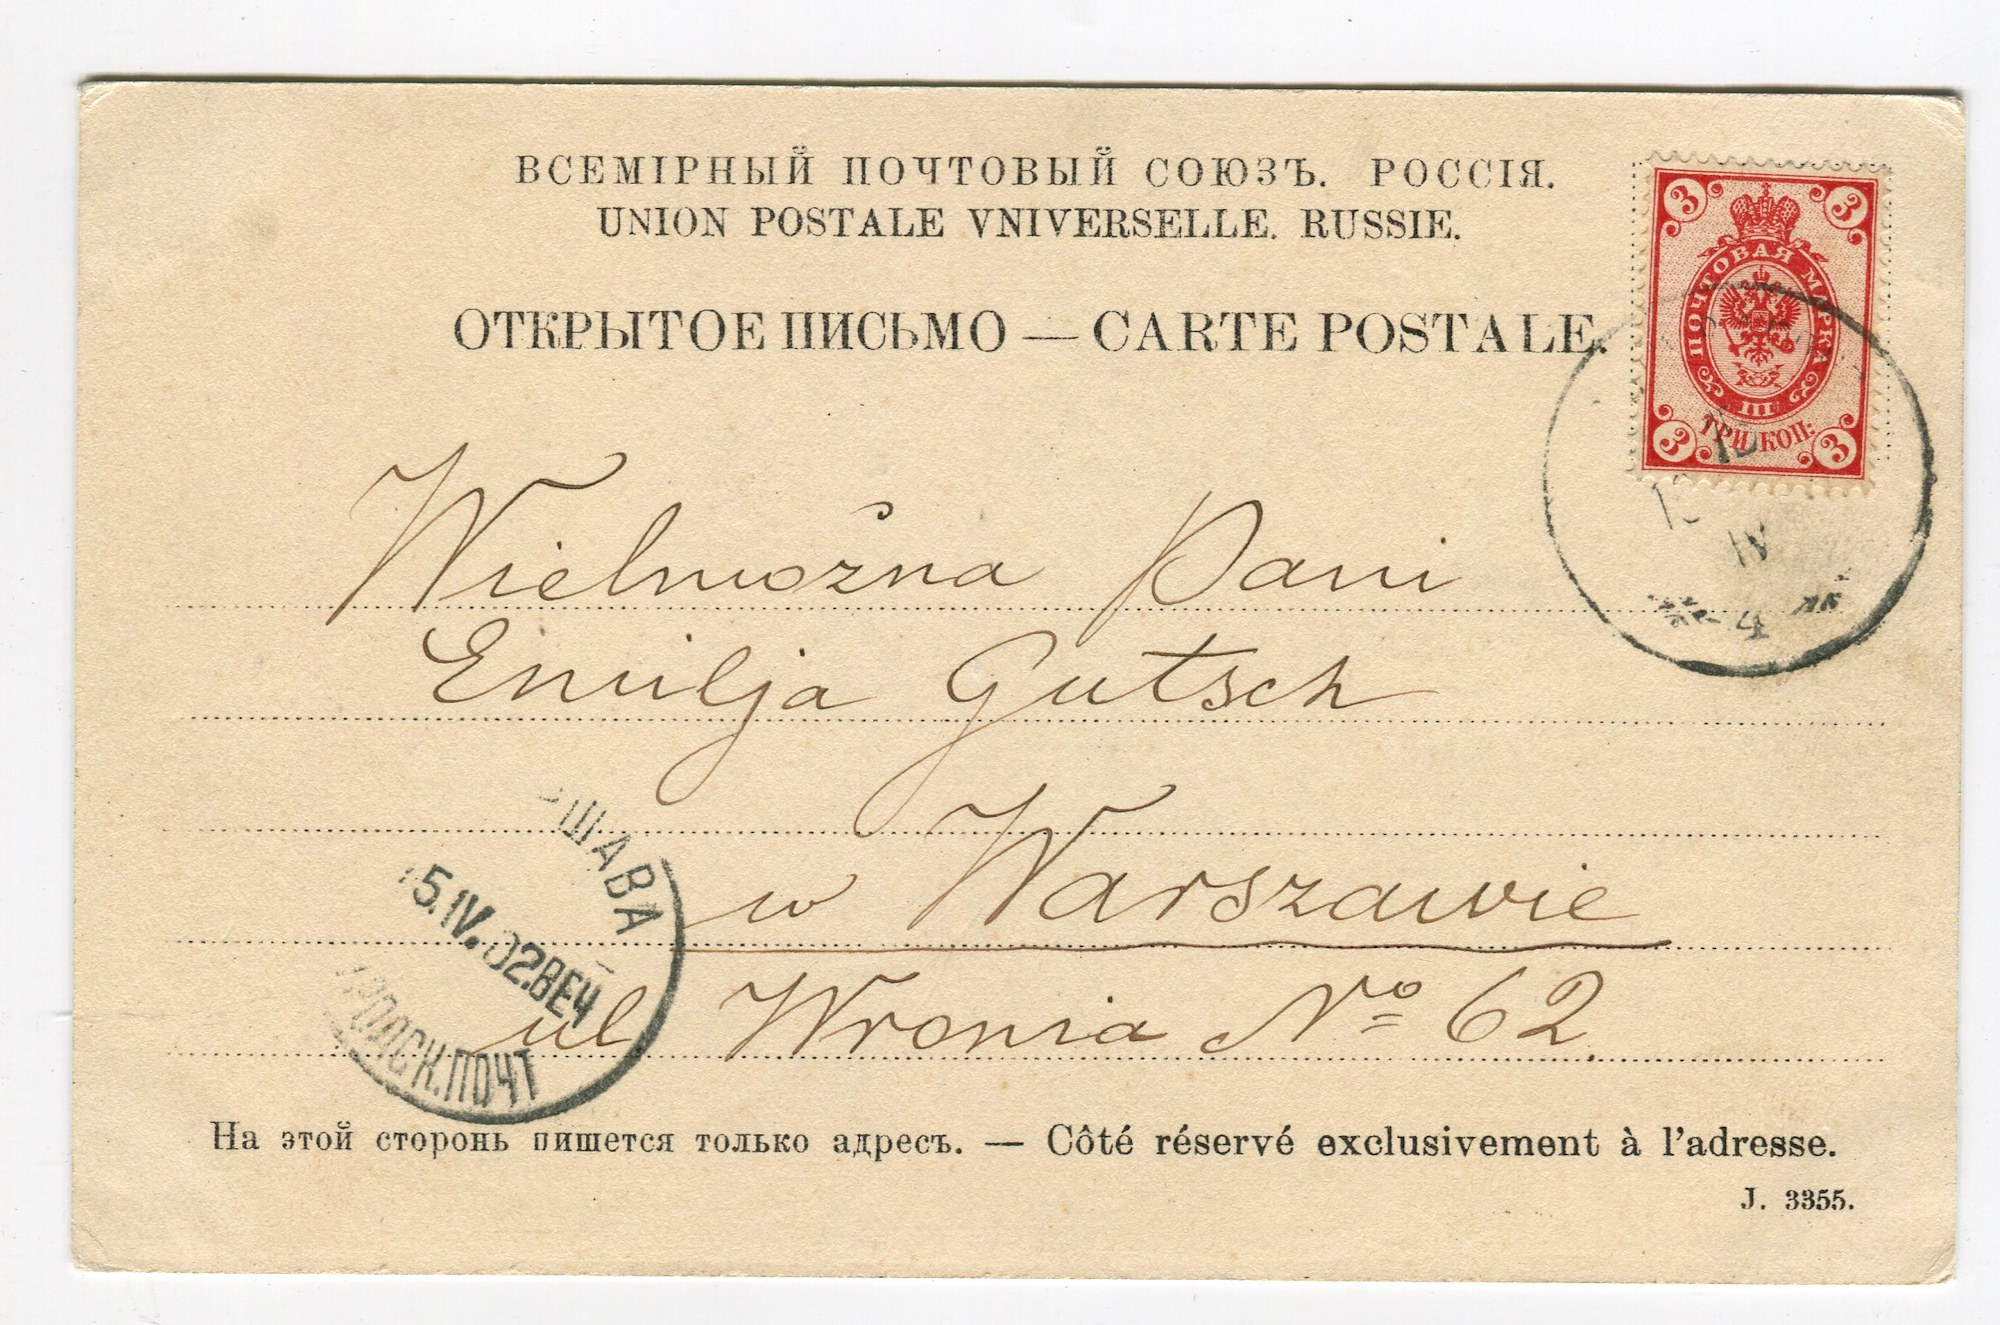 ВСЕМІРНЫЙ ПОЧТОВЫЙ СОЮЗЪ. РОССІЯ.
UNION POSTALE VNIVERSELLE. RUSSIE.
ОТКРЫТОЕ ПИСЬМО — CARTE POSTALE.
3 3
ПОЧТОВАЯ МАРКА
III
ТРИ КОП:
3 3
IV
4
Wielmożna Pani
Emilja Gutsch
w Warszawie
ul Wronia № 62
ШАВА
5.IV.02.ВЕЧ
РОДСК.ПОЧТ
На этой сторонь пишется только адресъ. — Côté réservé exclusivement à l'adresse.
J. 3355.